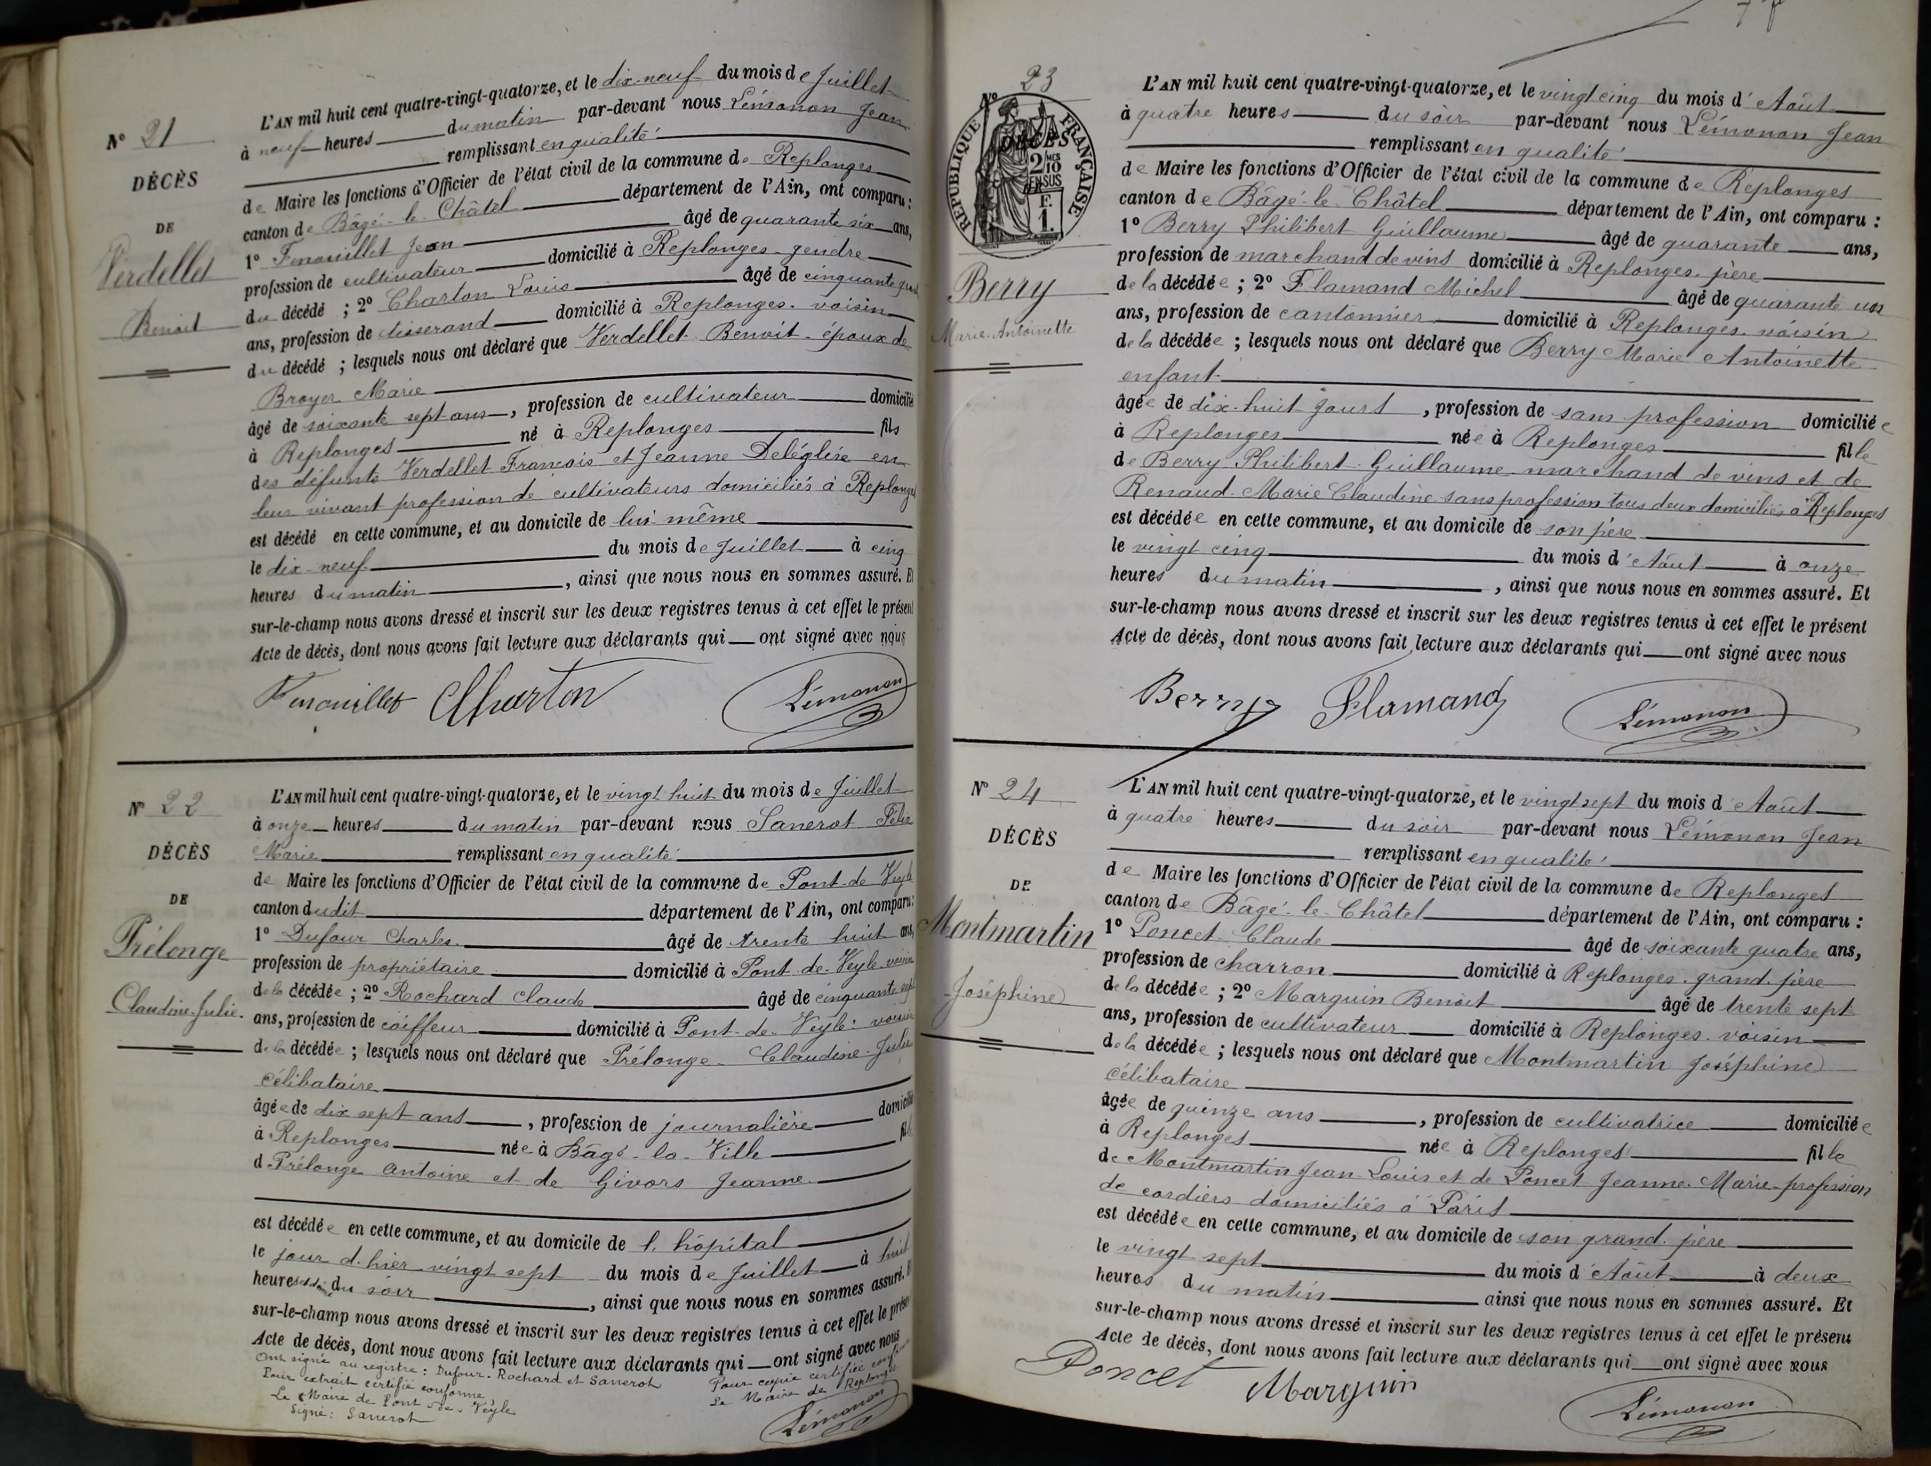 N° 21
DÉCÈS
DE
Verdellet
Benoit
L'AN mil huit cent quatre-vingt-quatorze, et le dix-neuf du mois de Juillet
à neuf heures du matin par-devant nous Lémonon Jean
remplissant en qualité
de Maire les fonctions d'Officier de l'état civil de la commune de Replonges
canton de Bâgé-le-Châtel département de l'Ain, ont comparu :
1° Fenouillet Jean âgé de quarante six ans,
profession de cultivateur domicilié à Replonges gendre
du décédé ; 2° Charton Louis âgé de cinquante
ans, profession de tisserand domicilié à Replonges voisin
du décédé ; lesquels nous ont déclaré que Verdellet Benoit époux de
Broyer Marie
âgé de soixante sept ans, profession de cultivateur domicilié
à Replonges né à Replonges fils
des défunts Verdellet François et Jeanne Deléglise en
leur vivant profession de cultivateurs domiciliés à Replonges
est décédé en cette commune, et au domicile de lui même
le dix-neuf du mois de Juillet à cinq
heures du matin, ainsi que nous nous en sommes assuré. Et
sur-le-champ nous avons dressé et inscrit sur les deux registres tenus à cet effet le présent
Acte de décès, dont nous avons fait lecture aux déclarants qui ont signé avec nous
Fenouillet Charton Lémonon
N° 22
DÉCÈS
DE
Prélonge
Claudine-Julie.
L'AN mil huit cent quatre-vingt-quatorze, et le vingt huit du mois de Juillet
à onze heures du matin par-devant nous Sanerot Félix
Marie remplissant en qualité
de Maire les fonctions d'Officier de l'état civil de la commune de Pont-de-Veyle
canton dudit département de l'Ain, ont comparu :
1° Dufour Charles âgé de trente huit ans,
profession de propriétaire domicilié à Pont-de-Veyle voisin
de la décédée ; 2° Rochard Claude âgé de cinquante sept
ans, profession de coiffeur domicilié à Pont-de-Veyle voisin
de la décédée ; lesquels nous ont déclaré que Prélonge Claudine Julie
célibataire
âgée de dix sept ans, profession de journalière domicilié
à Replonges née à Bâgé-la-Ville fil
d Prélonge Antoine et de Givors Jeanne
est décédée en cette commune, et au domicile de l'hôpital
le jour d'hier vingt sept du mois de Juillet à huit
heures du soir, ainsi que nous nous en sommes assuré. E
sur-le-champ nous avons dressé et inscrit sur les deux registres tenus à cet effet le présent
Acte de décès, dont nous avons fait lecture aux déclarants qui ont signé avec nous
Ont signé au registre : Dufour, Rochard et Sanerot
Pour extrait certifié conforme
Le Maire de Pont-de-Veyle
Signé : Sanerot
Pour copie certifiée conforme
Le Maire de Replonges
Lémonon
N° 23
RÉPUBLIQUE FRANÇAISE
DÉCÈS
2/10 MES
EN SUS
DE
F.
1.
Berry
Marie-Antoinette
L'AN mil huit cent quatre-vingt-quatorze, et le vingt cinq du mois d'Août
à quatre heures du soir par-devant nous Lémonon Jean
remplissant en qualité
de Maire les fonctions d'Officier de l'état civil de la commune de Replonges
canton de Bâgé-le-Châtel département de l'Ain, ont comparu :
1° Berry Philibert Guillaume âgé de quarante ans,
profession de marchand de vins domicilié à Replonges père
de la décédée ; 2° Flamand Michel âgé de quarante un
ans, profession de cantonnier domicilié à Replonges voisin
de la décédée ; lesquels nous ont déclaré que Berry Marie Antoinette
enfant
âgée de dix-huit jours, profession de sans profession domiciliée
à Replonges née à Replonges fille
de Berry Philibert-Guillaume marchand de vins et de
Renaud Marie Claudine sans profession tous deux domiciliés à Replonges
est décédée en cette commune, et au domicile de son père
le vingt cinq du mois d'Août à onze
heures du matin, ainsi que nous nous en sommes assuré. Et
sur-le-champ nous avons dressé et inscrit sur les deux registres tenus à cet effet le présent
Acte de décès, dont nous avons fait lecture aux déclarants qui ont signé avec nous
Berry Flamand Lémonon
N° 24
DÉCÈS
DE
Montmartin
Joséphine
L'AN mil huit cent quatre-vingt-quatorze, et le vingt sept du mois d'Août
à quatre heures du soir par-devant nous Lémonon Jean
remplissant en qualité
de Maire les fonctions d'Officier de l'état civil de la commune de Replonges
canton de Bâgé-le-Châtel département de l'Ain, ont comparu :
1° Poncet Claude âgé de soixante quatre ans,
profession de charron domicilié à Replonges grand père
de la décédée ; 2° Marguin Benoit âgé de trente sept
ans, profession de cultivateur domicilié à Replonges voisin
de la décédée ; lesquels nous ont déclaré que Montmartin Joséphine
célibataire
âgée de quinze ans, profession de cultivatrice domiciliée
à Replonges née à Replonges fille
de Montmartin Jean Louis et de Poncet Jeanne Marie profession
de cordiers domiciliés à Paris
est décédée en cette commune, et au domicile de son grand père
le vingt sept du mois d'Août à deux
heures du matin ainsi que nous nous en sommes assuré. Et
sur-le-champ nous avons dressé et inscrit sur les deux registres tenus à cet effet le présent
Acte de décès, dont nous avons fait lecture aux déclarants qui ont signé avec nous
Poncet Marguin Lémonon